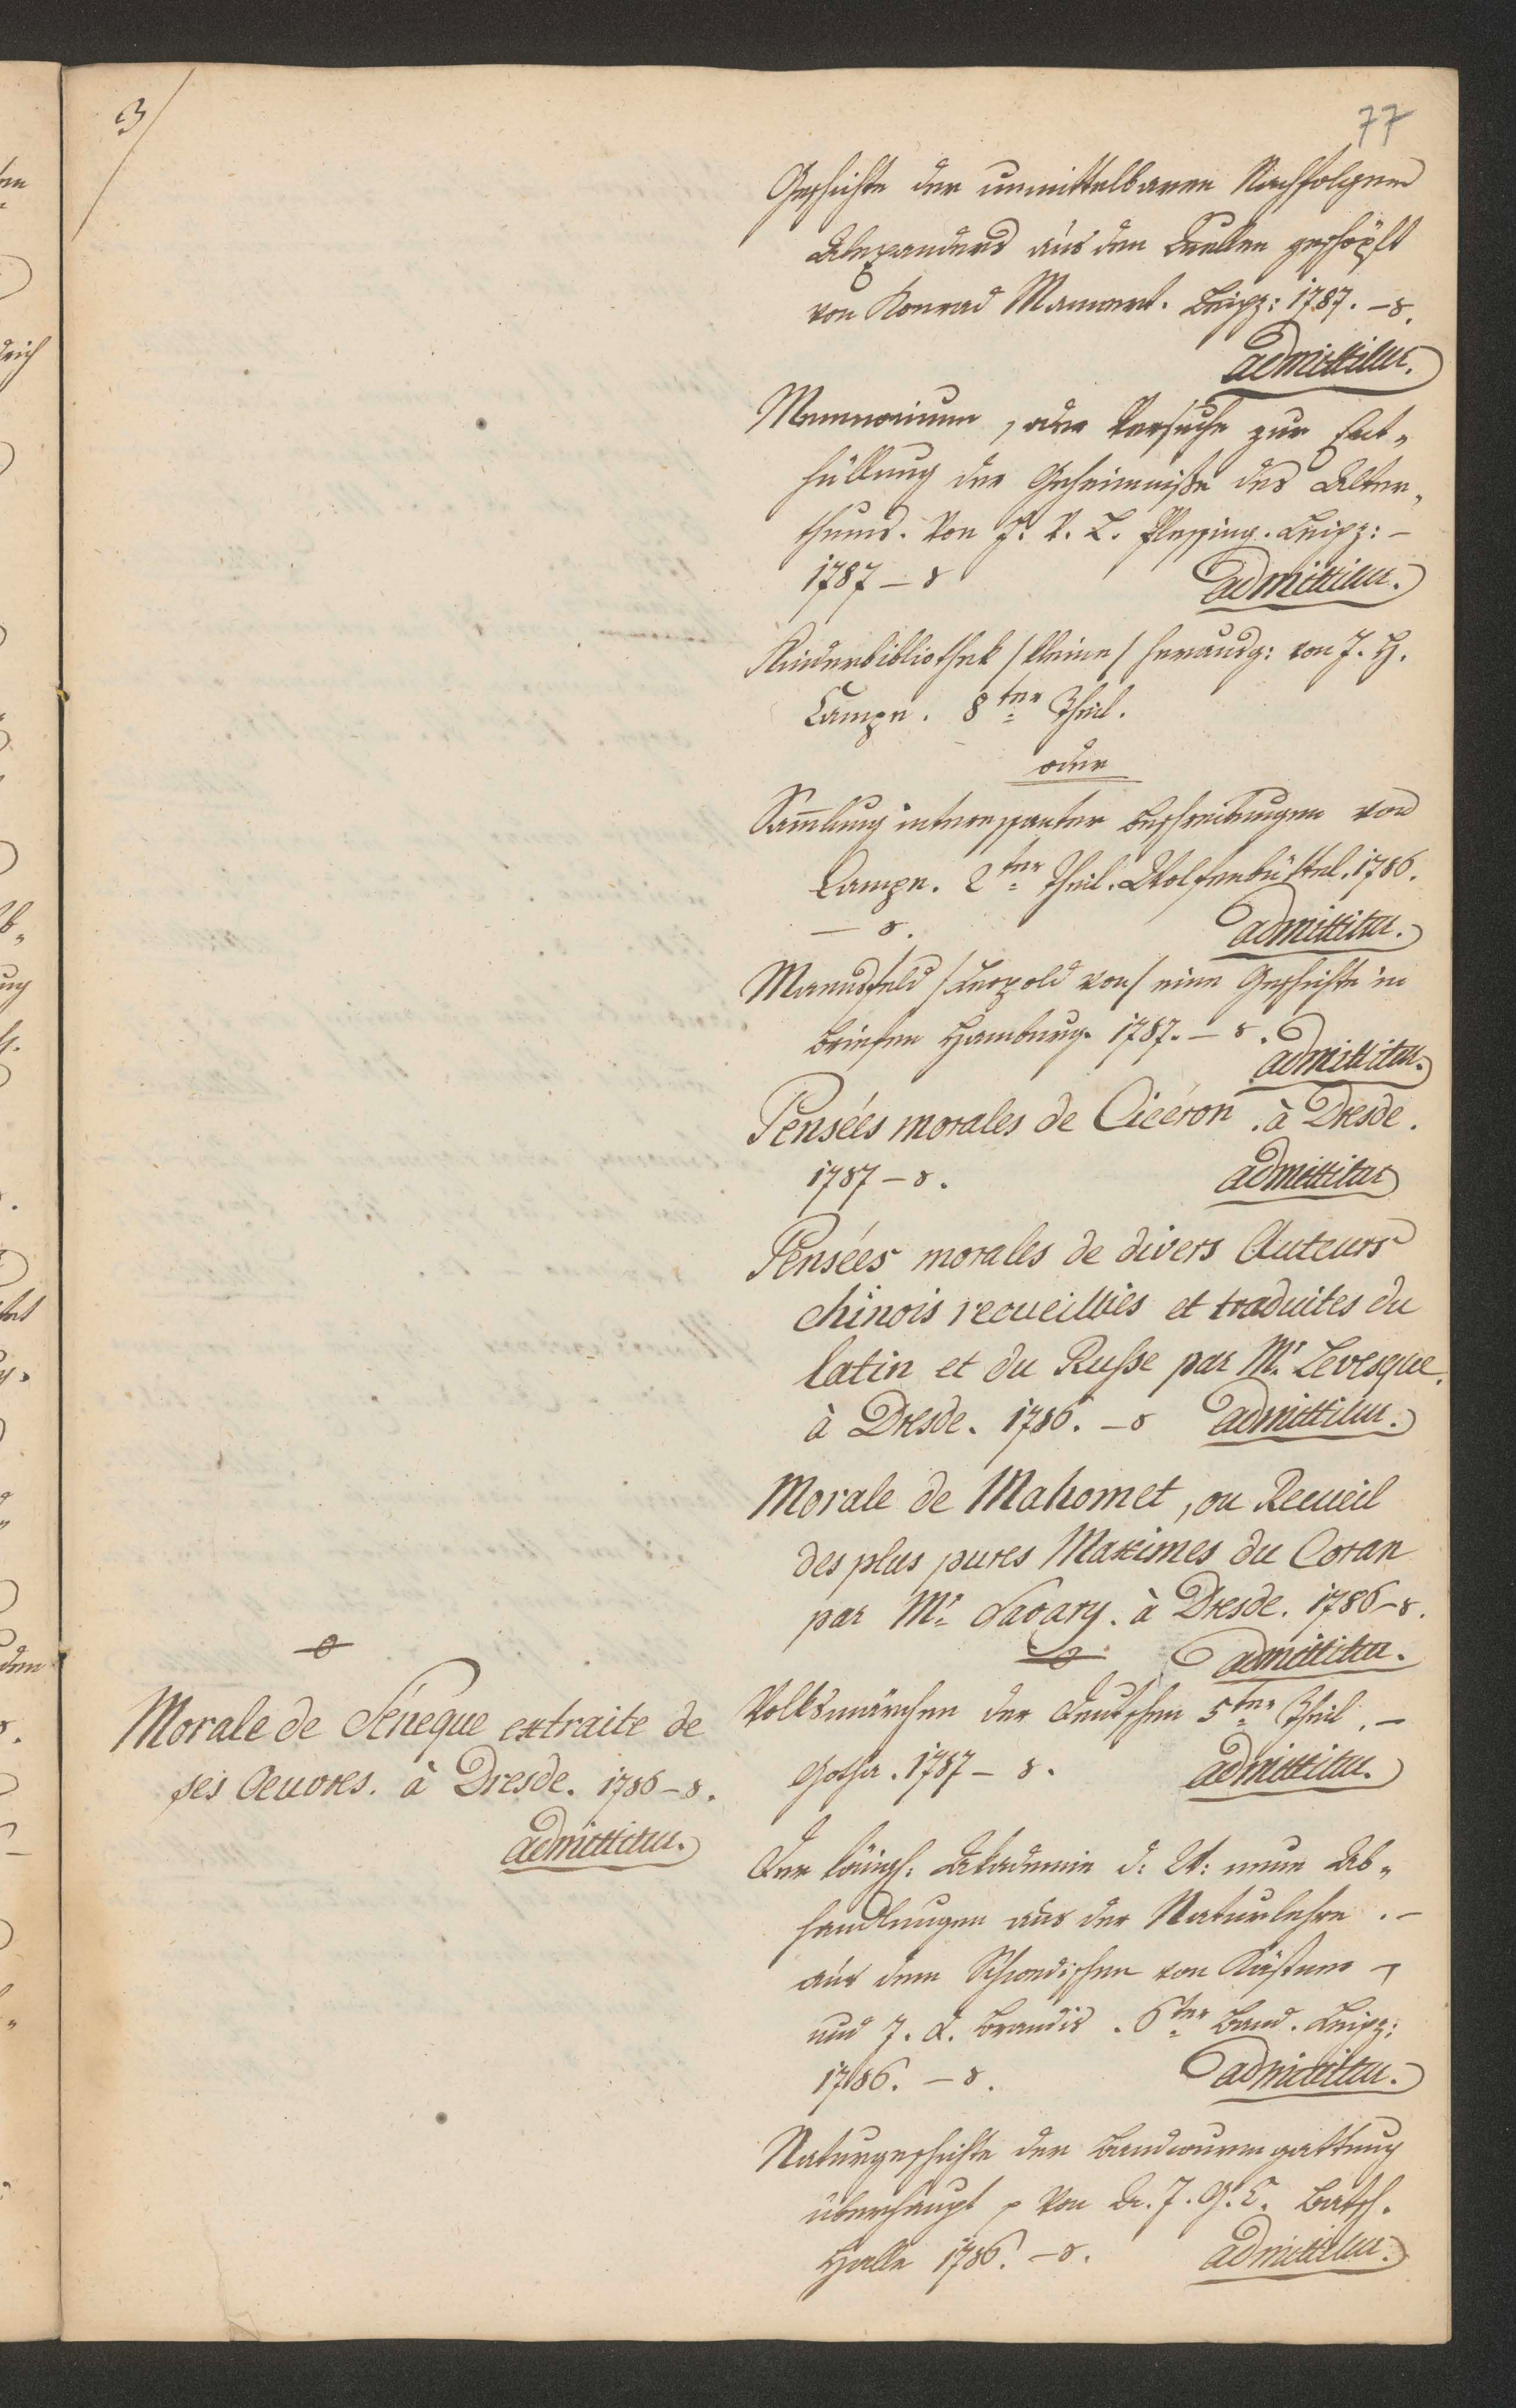 3/
77
Geschichte der unmittelbaren Nachfolger
Alexanders aus den Quellen geschöpft
von Konrad Mannert. Leipz: 1787. – 8.
admittitur.
Memnonium, oder Versuche zur Ent„
hüllung der Geheimniße des Alter„
thums. Von F. V. L. Plessing. Leipz: –
1787 – 8
admittitur.
Kinderbibliothek /kleine/ herausg: von J. H.
Campe. 8ter Theil.
oder
Sam̅lung interessanter Beschreibungen von
Campe. 2ter Theil. Wolfenbüttel. 1786.
– 8.
admittitur.
Mannsfeld /Leopold von/ eine Geschichte in
Briefen Hamburg. 1787. – 8.
admittitur.
Pensées morales de Cicéron. à Dresde.
1787 – 8.
admittitur
Pensées morales de divers Auteurs
chinois recueilliés et traduites du
latin et du Russe par Mr. Levesque.
à Dresde. 1786. – 8 admittitur.
Morale de Mahomet, ou Recueil
des plus pures Maximes du Coran
par Mr. Savary. à Dresde. 1786 – 8.
admittitur.
Morale de Séneque extraite de
ses Oeuvres. à Dresde. 1786 – 8.
admittitur.
Volksmärchen der Deutschen 5ter Theil. –
Gotha. 1787 – 8.
admittitur.
Der königl: Akademie d: W: neue Ab„
handlungen aus der Naturlehre. –
aus dem Schwedischen von Kästner –
und J. D. Brandis. 6ter Band. Leipz:
1786. – 8.
admittitur.
Naturgeschichte der Bandwurmgattung
überhaupt p Von Dr. J. G. C. Batsch.
Halle 1786. – 8.
admittitur.